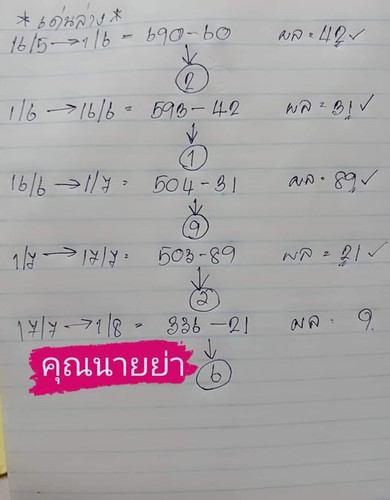 * เด่นล่าง *
16/5 → 1/6 = 690-60 ผล = 42 ✓
↓
②
1/6 → 16/6 = 593-42 ผล = 31 ✓
↓
①
16/6 → 1/7 = 504-31 ผล = 89 ✓
↓
⑨
1/7 → 17/7 = 503-89 ผล = 21 ✓
↓
②
17/7 → 1/8 = 336-21 ผล = ?
↓
⑥
คุณนายย่า